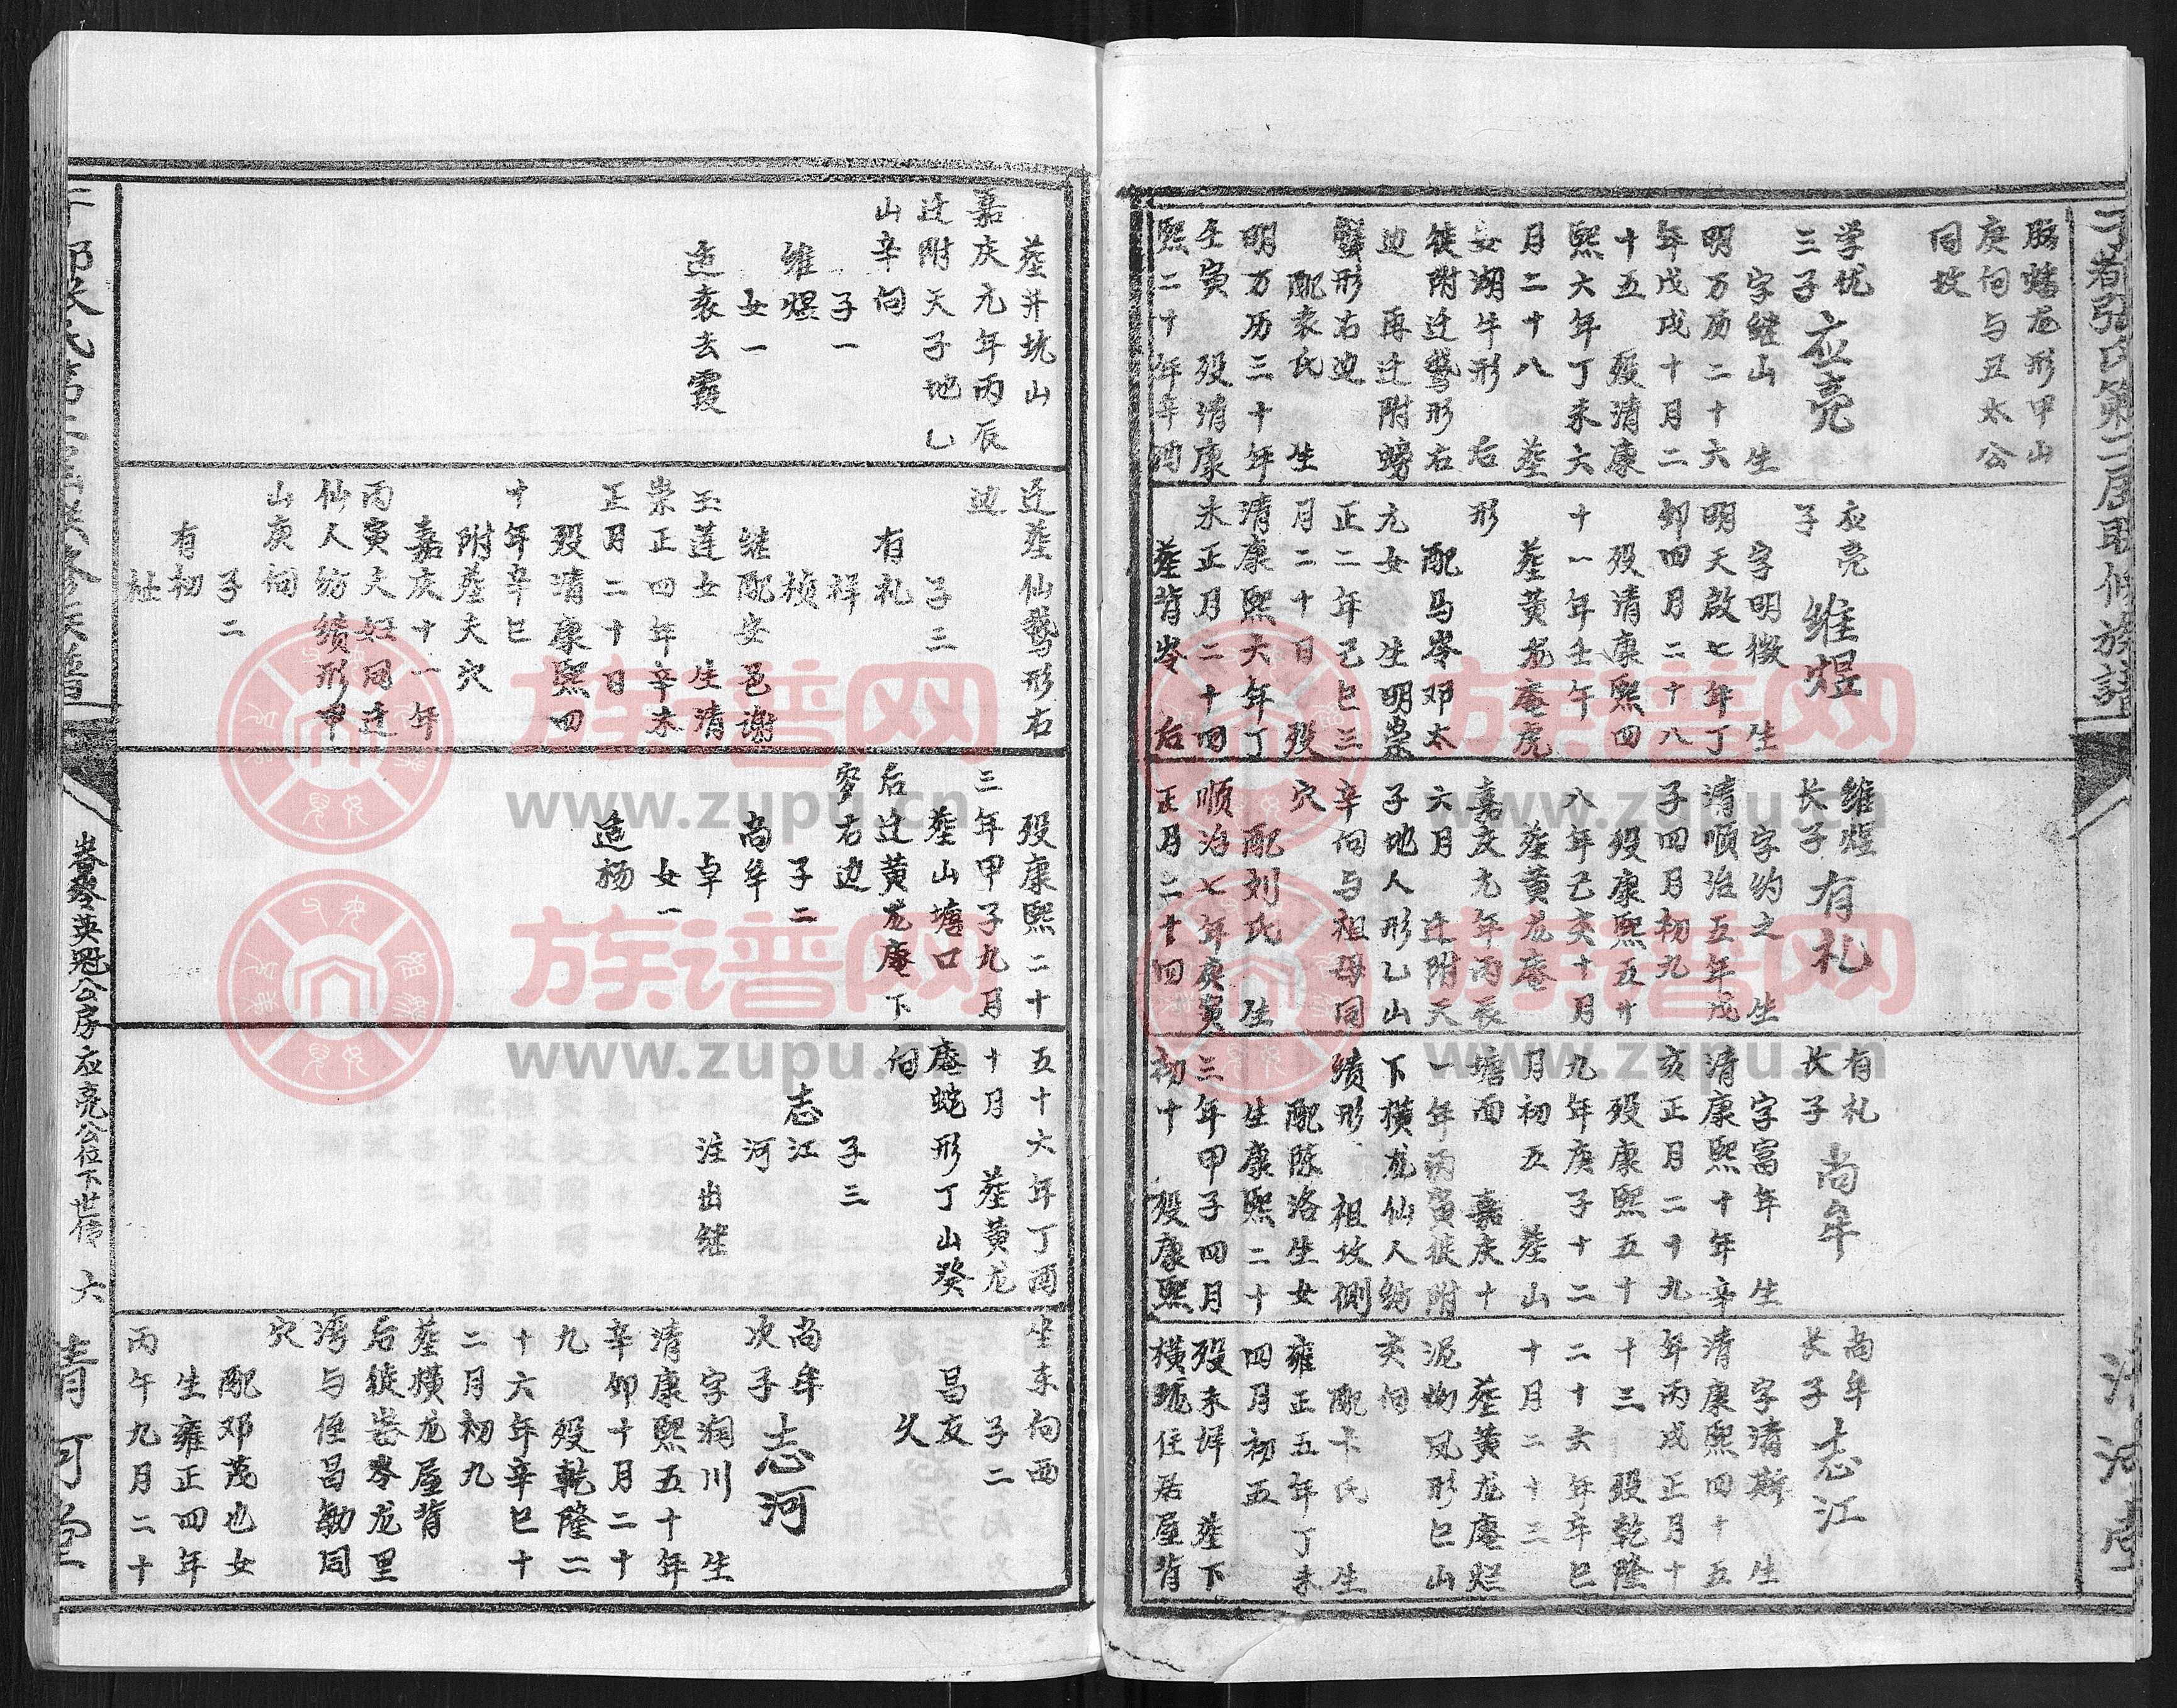 脑蟠龙形甲山
庚向与丑太公
同坟
学优
三子
应亮
字继山 生
明万历二十六
年戊戌十月二
十五 殁清康
熙六年丁未六
月二十八 葬
安湖牛形 后
徙附迁鹅形右
边 再迁附螃
蟹形右边
配袁氏 生
明万历三十年
壬寅 殁清康
熙二十年辛酉
应亮
子
维煜
字明微 生
明天启七年丁
卯四月二十八
殁清康熙四
十一年壬午
葬黄龙庵虎
形
配马岑邓太
九女 生明崇
正二年己巳三
月二十日 殁
清康熙六年丁
未正月二十四
葬背岑 后
维煜
长子
有礼
字约之 生
清顺治五年戊
子四月初九
殁康熙五十
八年己亥十月
葬黄龙庵
嘉庆九年丙辰
六月 迁附天
子地人形乙山
辛向与祖母同
穴
配刘氏 生
顺治七年庚寅
正月二十四
有礼
长子
尚牟
字富年 生
清康熙十年辛
亥正月二十九
殁康熙五十
九年庚子十二
月初五 葬山
塘面 嘉庆十
一年丙寅徙附
下横龙仙人纺
绩形 祖坟侧
配陈洛生女
生康熙二十
三年甲子四月
初十 殁康熙
尚牟
长子
志江
字清斯 生
清康熙四十五
年丙戌正月十
十三 殁乾隆
二十六年辛巳
十月二十三
葬黄龙庵烂
泥坳凤形巳山
亥向
配卞氏 生
雍正五年丁未
四月初五
殁未详 葬下
横坑住居屋背
葬井坑山
嘉庆九年丙辰
迁附天子地乙
山辛向
子一
维煜
女一
适袁去霞
迁葬仙鹅形右
边
子三
有礼
祥
祯
继配安邑谢
玉莲女 生清
崇正四年辛未
正月二十日
殁清康熙四
十年辛巳
附葬夫穴
嘉庆十一年
丙寅夫妇同迁
仙人纺绩形甲
山庚向
子二
有初
祉
殁康熙二十
三年甲子九月
葬山塘口
后迁黄龙庵下
窝右边
子二
尚牟
卓
女一
适杨
五十六年丁酉
十月 葬黄龙
庵蛇形丁山癸
向
子三
志江
河
注出继
坐东向西
子二
昌友
久
尚牟
次子
志河
字润川 生
清康熙五十年
辛卯十月二十
九 殁乾隆二
十六年辛巳十
二月初九
葬横龙屋背
后徙岙岑龙里
湾与侄昌勋同
穴
配邓茂也女
生雍正四年
丙午九月二十
岙岑英魁公房应亮公位下世传 六
清河堂
族谱网
www.zupu.cn
族谱网
www.zupu.cn
族谱网
www.zupu.cn
族谱网
www.zupu.cn